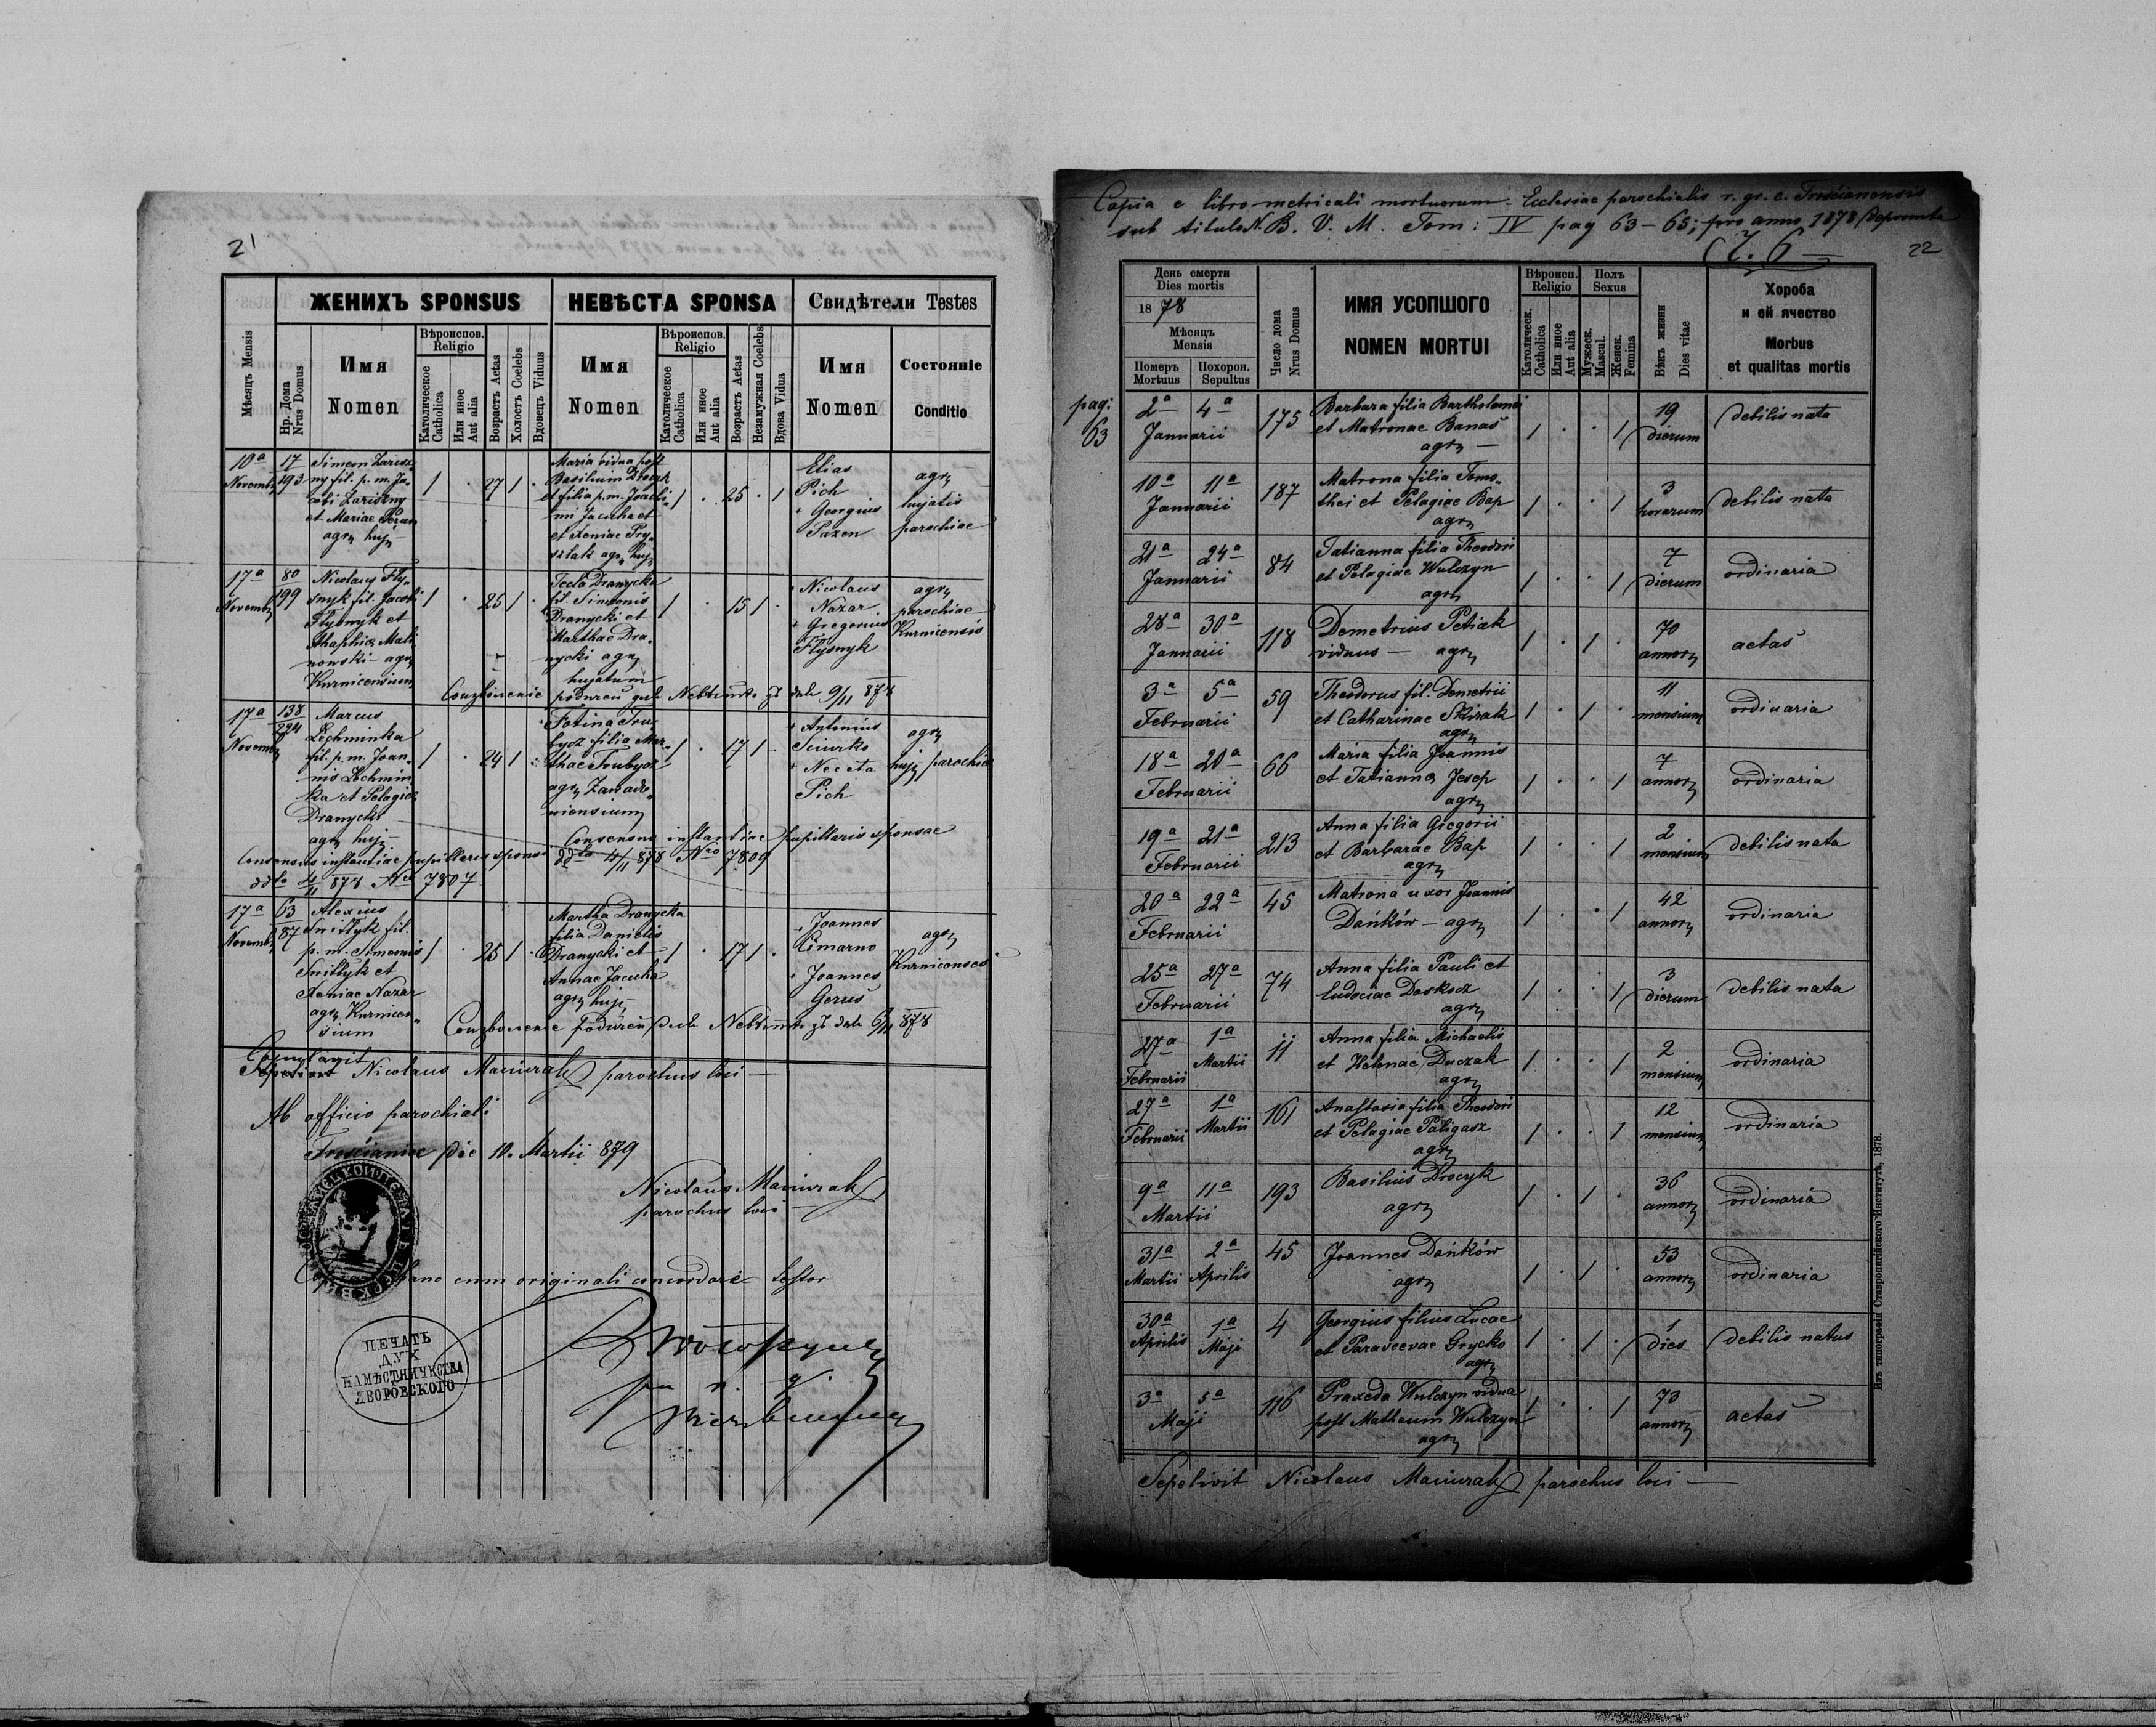 21
ЖЕНИХЪ SPONSUS
НЕВѢСТА SPONSA
Свидѣтели Testes
Мѣсяцъ Mensis
Нр. Дома Nrus Domus
Имя Nomen
Вѣроиспов. Religio
Католическое Catholica
Или иное Aut alia
Возрастъ Aetas
Холостъ Coelebs
Вдовецъ Viduus
Имя Nomen
Вѣроиспов. Religio
Католическое Catholica
Или иное Aut alia
Возрастъ Aetas
Незамужная Coelebs
Вдова Vidua
Имя Nomen
Состоянiе Conditio
10a Novemb 17 193
Simeon Zarisz-
ny fil. p. m. Ja-
cobi Zariszny
et Mariae
agr huj
1 . 27 1 .
Maria vidua post
Basilium Drocyk
et filia p. m. Joachi-
mi Jacucha et
et Xeniae Pry-
sztak agr huj
1 . 25 . 1
Elias
Pich
+ Georgius
Pazen
agr
hujatis
parochiae
17a Novemb 80 199
Nicolaus Fly-
snyk fil. Jacobi
Flysnyk et
Agaphiae Mali-
nowski - agr
Kurnicensium
1 . 25 1 .
Tecla Dranycka
fil. Simeonis
Dranycki et
Marthae Dra-
nycki agr
hujatum
1 . 15 1 .
+ Nicolaus
Nazar
+ Gregorius
Flysnyk
agr
parochiae
Kurnicensis
9/11 878
17a Novemb 138 224
Marcus
Lechminka
fil. p. m. Joan-
nis Lechmin-
ka et Pelagiae
Dranycki
agr huj
1 . 24 1 .
Fotina Tru-
bycz filia Mar-
thae Trubycz
agr Zawado-
wiensium
1 . 17 1 .
+ Antonius
Sciurko
+ Niceta
Pich
agr
huj parochiae
Consensus instantiae pupillaris sponsae
ddto 4/11 878 Nro 7809
Consensus instantiae pupillaris sponsi
ddto 4/11 878 Nro 7807
17a Novemb 63 87
Alexius
Smittyk fil.
p. m. Simeonis
Smittyk et
Xeniae Nazar
agr Kurnicen-
sium
1 . 25 1 .
Martha Dranycka
filia Danielis
Dranycki et
Annae Jacucha
agr huj
1 . 17 1 .
+ Joannes
Cimarno
+ Joannes
Gerus
agr
Kurnicenses
6/11 878
Copulavit
Nicolaus Maciurak parochus loci
Ab officio parochiali
Trościaniec die 10. Martii 879
Nicolaus Maciurak
parochus loci
hanc cum originali concordare testor
ПЕЧАТЬ
ДУХ
НАМѢСТНИЧЕСТВА
ЯВОРОВСКОГО
Copia e libro metricali mortuorum Ecclesiae parochialis r. gr. c. Trościanensis
sub titulo N. B. V. M. Tom: IV pag 63 – 65; pro anno 1878 depromta
22
День смерти Dies mortis
1878
Мѣсяцъ Mensis
Померъ Mortuus
Похорон. Sepultus
Число дома Nrus Domus
ИМЯ УСОПШОГО
NOMEN MORTUI
Вѣроисп. Religio
Католическ. Catholica
Или иное Aut alia
Полъ Sexus
Мужеск. Mascul.
Женск. Femina
Вѣкъ жизни Dies vitae
Хороба
и ей ячество
Morbus
et qualitas mortis
pag: 63
2a 4a Januarii 175
Barbara filia Bartholomei
et Matronae Banaś
agr
1 . . 1 19 dierum debilis nata
10a 11a Januarii 187
Matrona filia Timo-
thei et Pelagiae Bap
agr
1 . . 1 3 horarum debilis nata
21a 24a Januarii 84
Tatianna filia Theodori
et Pelagiae Wulczyn
agr
1 . . 1 7 dierum ordinaria
28a 30a Januarii 118
Demetrius Petiak
viduus — agr
1 . 1 . 70 annor aetas
3a 5a Februarii 59
Theodorus fil. Demetrii
et Catharinae Skirak
agr
1 . 1 . 11 mensium ordinaria
18a 20a Februarii 66
Maria filia Joannis
et Tatiannae Jesep
agr
1 . . 1 7 annor ordinaria
19a 21a Februarii 213
Anna filia Gregorii
et Barbarae Bap
agr
1 . . 1 2 mensium debilis nata
20a 22a Februarii 45
Matrona uxor Joannis
Dańków — agr
1 . . 1 42 annor ordinaria
25a 27a Februarii 74
Anna filia Pauli et
Eudociae Doskocz
agr
1 . . 1 3 dierum debilis nata
27a Februarii 1a Martii 11
Anna filia Michaelis
et Helenae Duczak
agr
1 . . 1 2 mensium ordinaria
27a Februarii 1a Martii 161
Anastasia filia Theodori
et Pelagiae Paligasz
agr
1 . . 1 12 mensium ordinaria
9a 11a Martii 193
Basilius Drocyk
agr
1 . 1 . 36 annor ordinaria
31a Martii 2a Aprilis 45
Joannes Dańków
agr
1 . 1 . 53 annor ordinaria
30a Aprilis 1a Maji 4
Georgius filius Lucae
et Parascevae Grycko
agr
1 . 1 . 1 dies debilis natus
3a 5a Maji 116
Praxeda Wulczyn vidua
post Matheum Wulczyn
agr
1 . . 1 73 annor aetas
Sepelivit Nicolaus Maciurak parochus loci
Изъ типографiи Ставропигiйского Института, 1878.